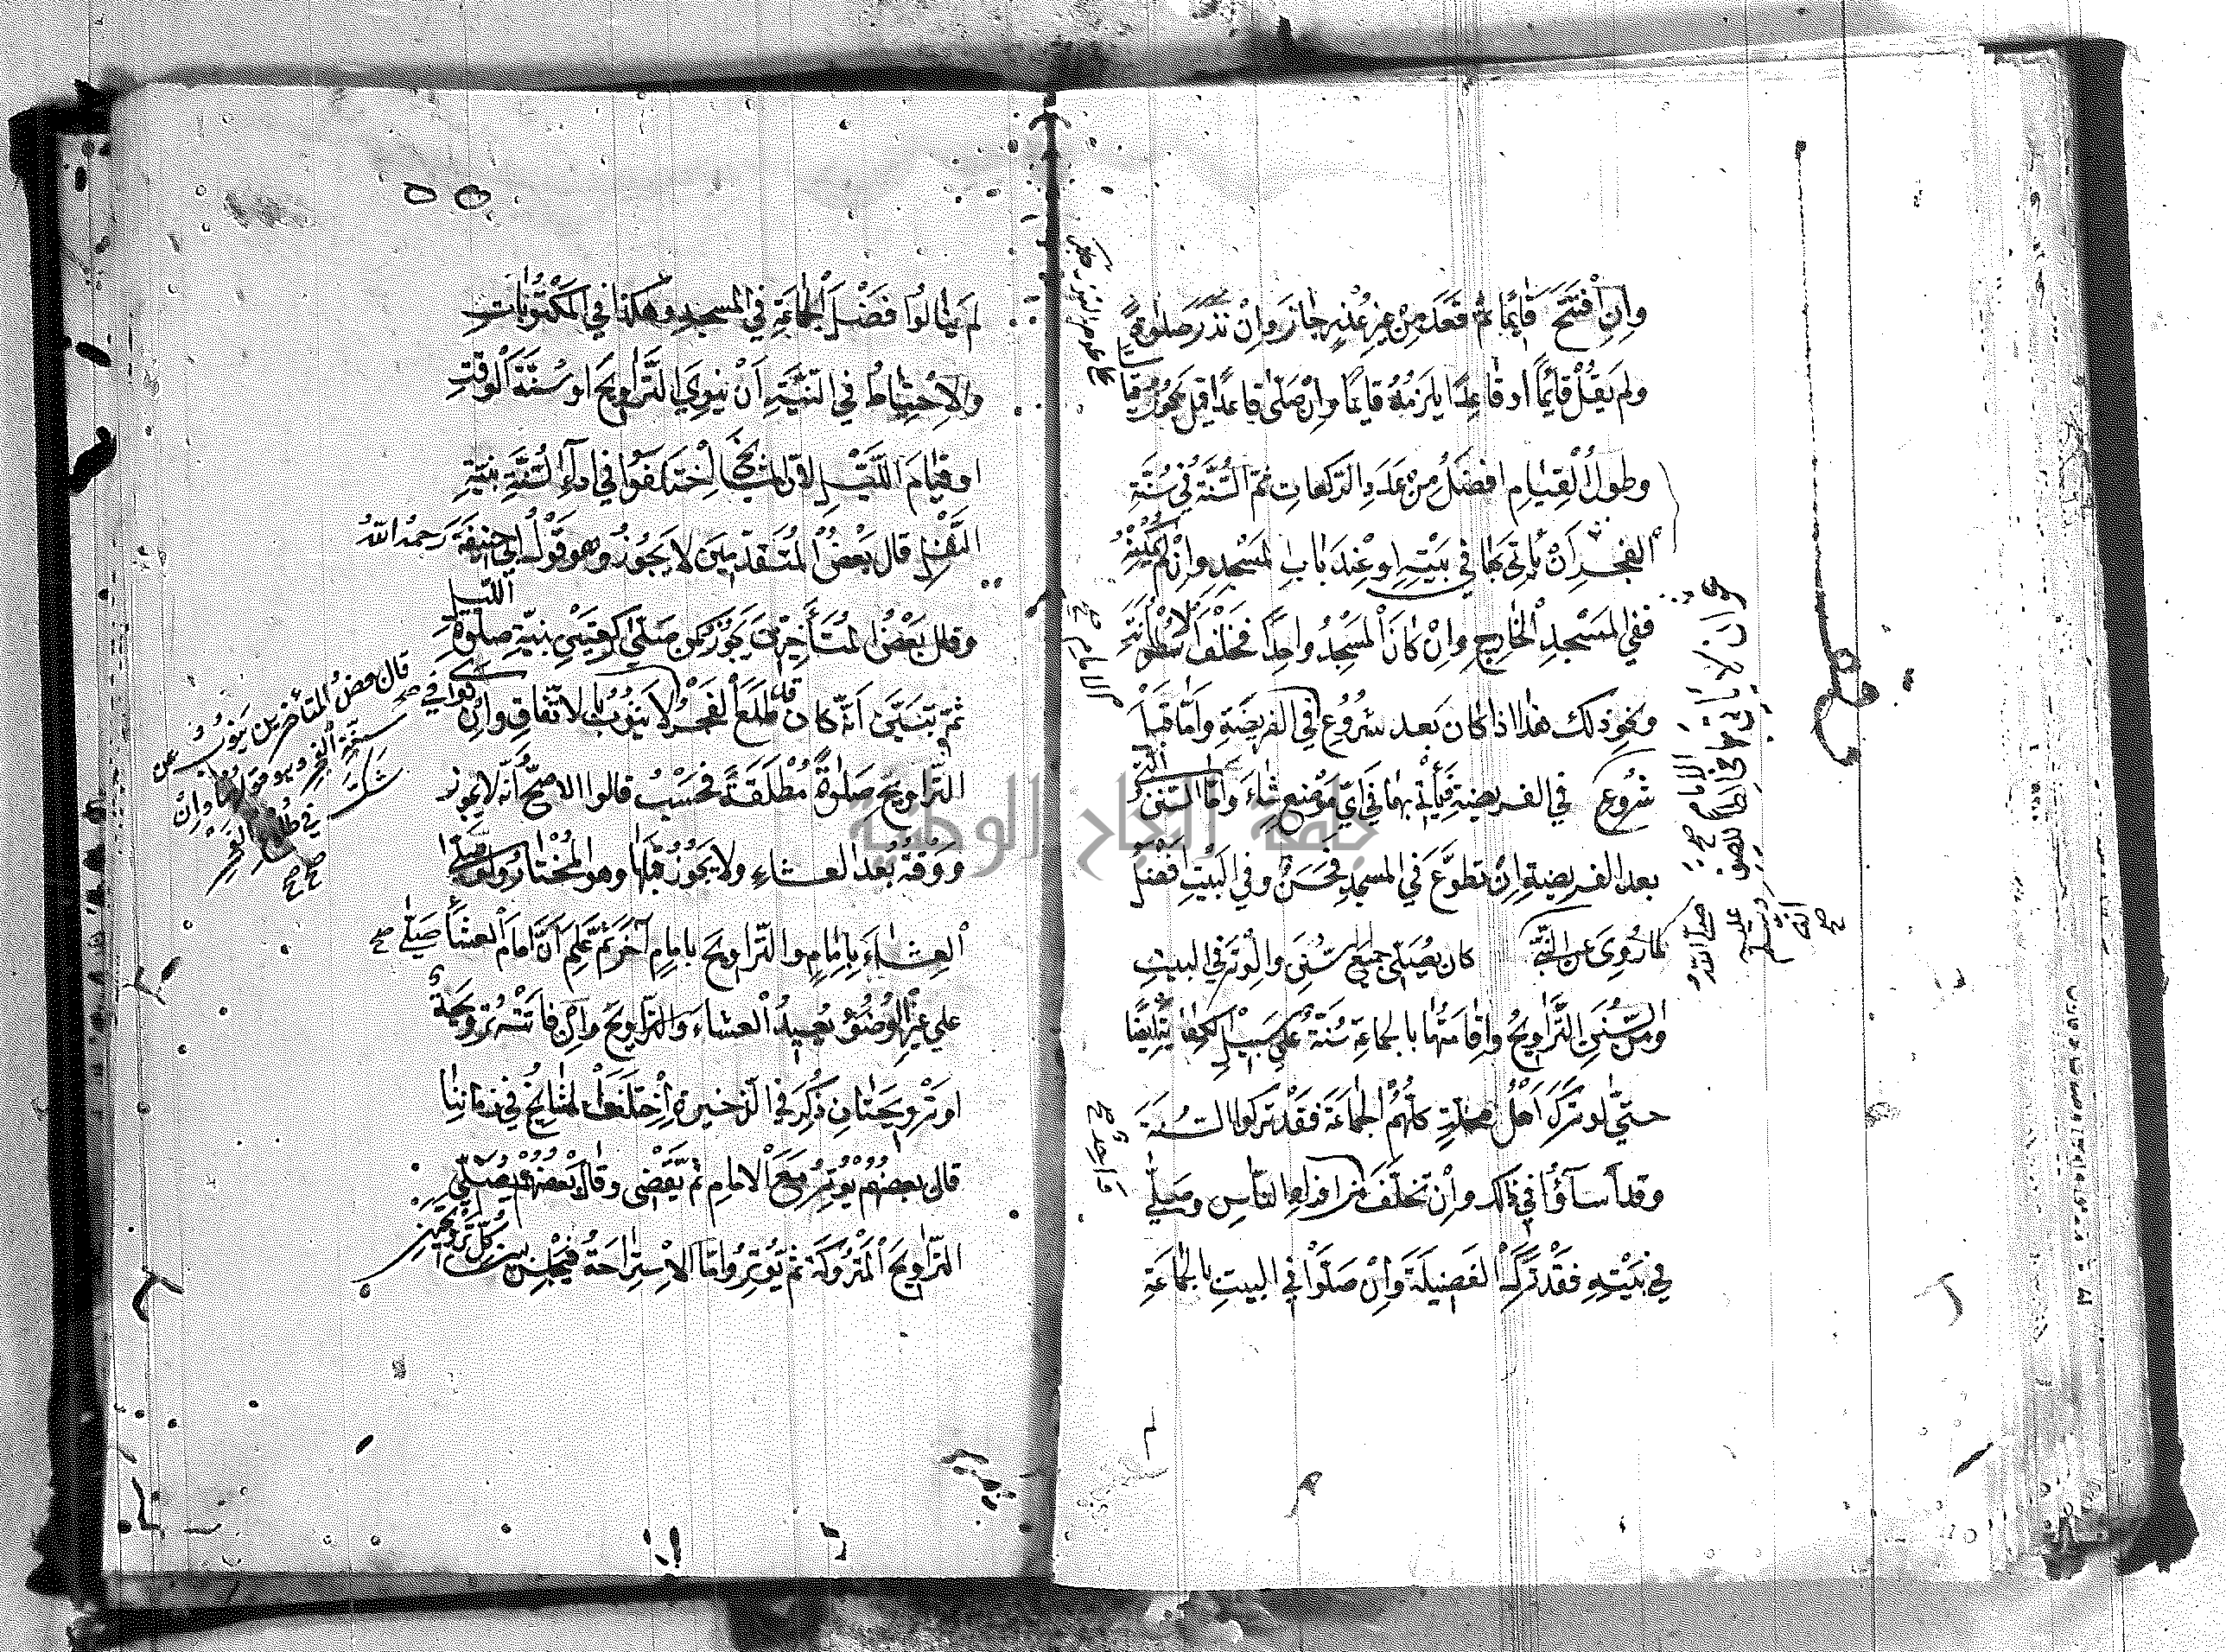 وان افتتح قائما ثم قعد من غير عذر جاز وان نذر صلوة
ولم يقل قائما او قاعدا يلزمه قائما وان صلى قاعدا قيل يجوز
وطول القيام افضل من عدد الركعات ثم السنة في سنة
الفجر ان يأتي بها في بيته او عند باب المسجد وان لم يمكنه
ففي المسجد الخارج وان كان المسجد واحدا فخلف الاسطوانة
ونحو ذلك هذا اذا كان بعد شروع في الفريضة واما قبل
شروع في الفريضة فيأتي بها في اي موضع شاء واما السنن التي
بعد الفريضة ان تطوع في المسجد فحسن وفي البيت افضل
لما روي عن النبي كان يصلي جميع السنن والوتر في البيت
صلى الله عليه وسلم
ومن السنن التراويح واقامتها بالجماعة سنة على سبيل الكفاية ايضا
حتى لو ترك اهل محلة كلهم الجماعة فقد تركوا السنة
وقد اساؤا في ذلك وان تخلف من افراد الناس وصلى
في بيته فقد ترك الفضيلة وان صلوا في البيت بالجماعة
٥٥
لم ينالوا فضل الجماعة في المسجد وهكذا في المكتوبات
والاحتياط في النية ان ينوي التراويح او سنة الوقت
او قيام الليل لان المشايخ اختلفوا في اداء السنة بنية
النفل قال بعض المتقدمين لا يجوز وهو قول ابي حنيفة رحمه الله
وقال بعض المتأخرين يجوز كمن صلى ركعتين بنية صلوة الليل
ثم تبين انه كان قد طلع الفجر لا ينوب بالاتفاق وان نوا في
قال بعض المتأخرين ينوب عن
سنة الفجر وهو قولهما وان
شك
في طلوع الفجر
صح صح
التراويح صلوة مطلقة فحسب قالوا الاصح انه لا يجوز
ووقته بعد العشاء ولا يجوز قبلها وهو المختار ولو صلى
العشاء بامام والتراويح بامام آخر ثم علم ان امام العشاء صلى صح
على غير الوضوء يعيد العشاء والتراويح وان فاتته ترويحة
او ترويحتان ذكر في الذخيرة اختلف المشايخ في زماننا
قال بعضهم يوتر مع الامام ثم يقضى وقال بعضهم يصلي
التراويح المتروكة ثم يوتر واما الاستراحة فيجلس بين كل ترويحتين